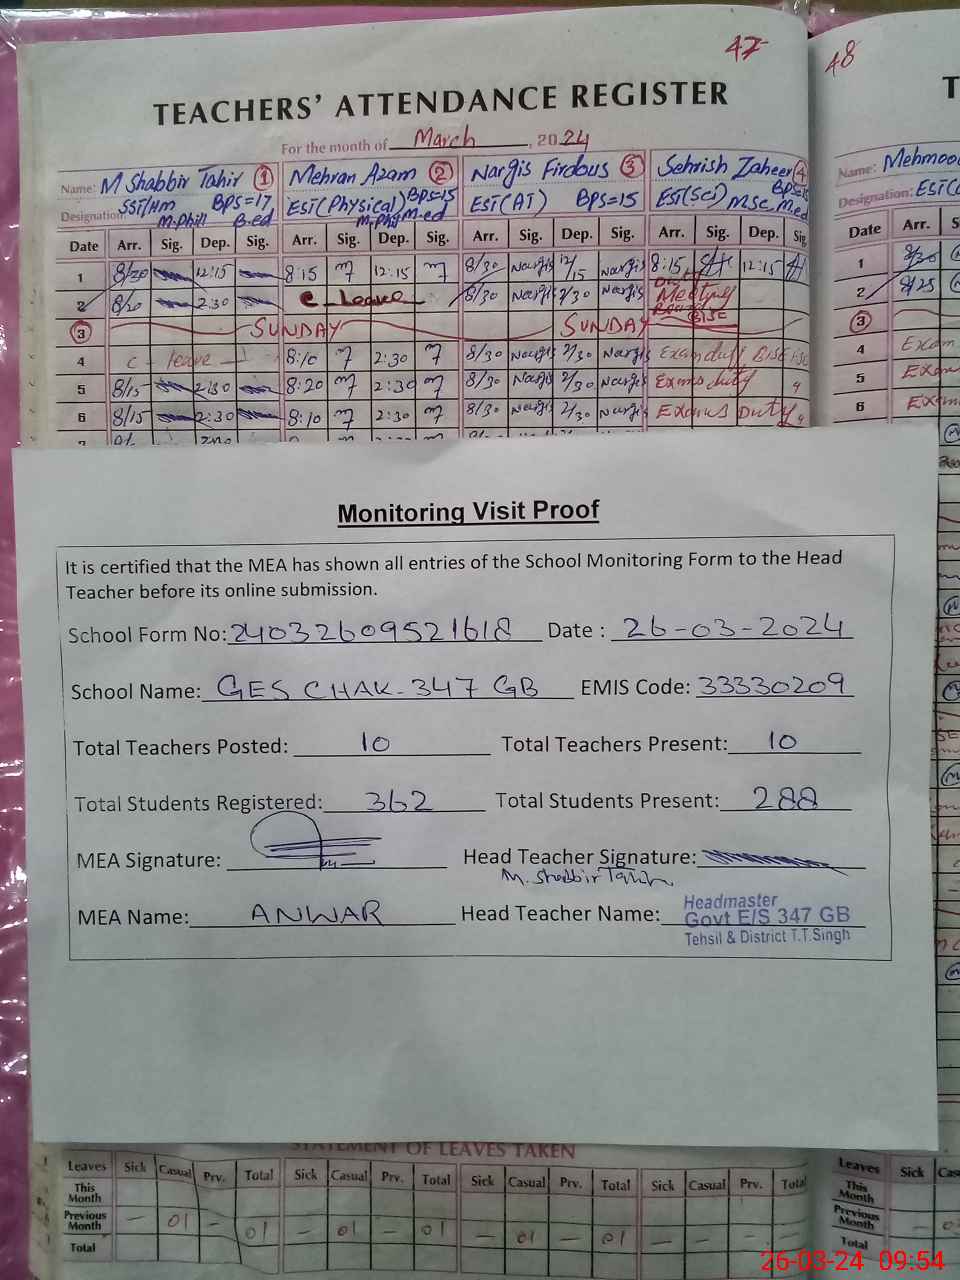 47
48
TEACHERS' ATTENDANCE REGISTER
For the month of March, 2024
Name: M Shabbir Tahir 1 Mehran Azam 2 Nargis Firdous 3 Sehrish Zaheer 4
Designation: SST/Hm BPS=17 EST(Physical) BPS=15 EST(AT) BPS=15 EST(Sci) MSc M.ed
M.Phill B.ed M.Phil M.ed
Name: Mehmoo
Designation: EST(
Date Arr. Sig. Dep. Sig. Arr. Sig. Dep. Sig. Arr. Sig. Dep. Sig. Arr. Sig. Dep. Sig
Date Arr. S
1 8/30 12:15 8:15 12:15 8/30 Nargis 12/15 Nargis 8:15 12:15
1 8/30
2 8/20 2:30 C-Leave 8/30 Nargis 2/30 Nargis Meeting BISE
2 8/25
3 SUNDAY SUNDAY
3
4 C-leave 8:10 2:30 8/30 Nargis 2/30 Nargis Exam duty BISE
4 Exam
5 8/15 2:30 8:20 2:30 8/30 Nargis 2/30 Nargis Exams duty
5 Exam
6 8/15 2:30 8:10 2:30 8/30 Nargis 2/30 Nargis Exams Duty
6 Exam
Monitoring Visit Proof
It is certified that the MEA has shown all entries of the School Monitoring Form to the Head
Teacher before its online submission.
School Form No: 24032609521618 Date : 26-03-2024
School Name: GES CHAK-347 GB EMIS Code: 33330209
Total Teachers Posted: 10 Total Teachers Present: 10
Total Students Registered: 362 Total Students Present: 288
MEA Signature: Head Teacher Signature:
M. Shabbir Tahir
MEA Name: ANWAR Head Teacher Name: Headmaster
Govt E/S 347 GB
Tehsil & District T.T.Singh
STATEMENT OF LEAVES TAKEN
Leaves Sick Casual Prv. Total Sick Casual Prv. Total Sick Casual Prv. Total Sick Casual Prv. Total
Leaves Sick Cas
This Month
This Month
Previous Month - 01 - 01 - 01 - 01 - 01 - 01 - - - -
Previous Month -
Total
Total
26-03-24 09:54